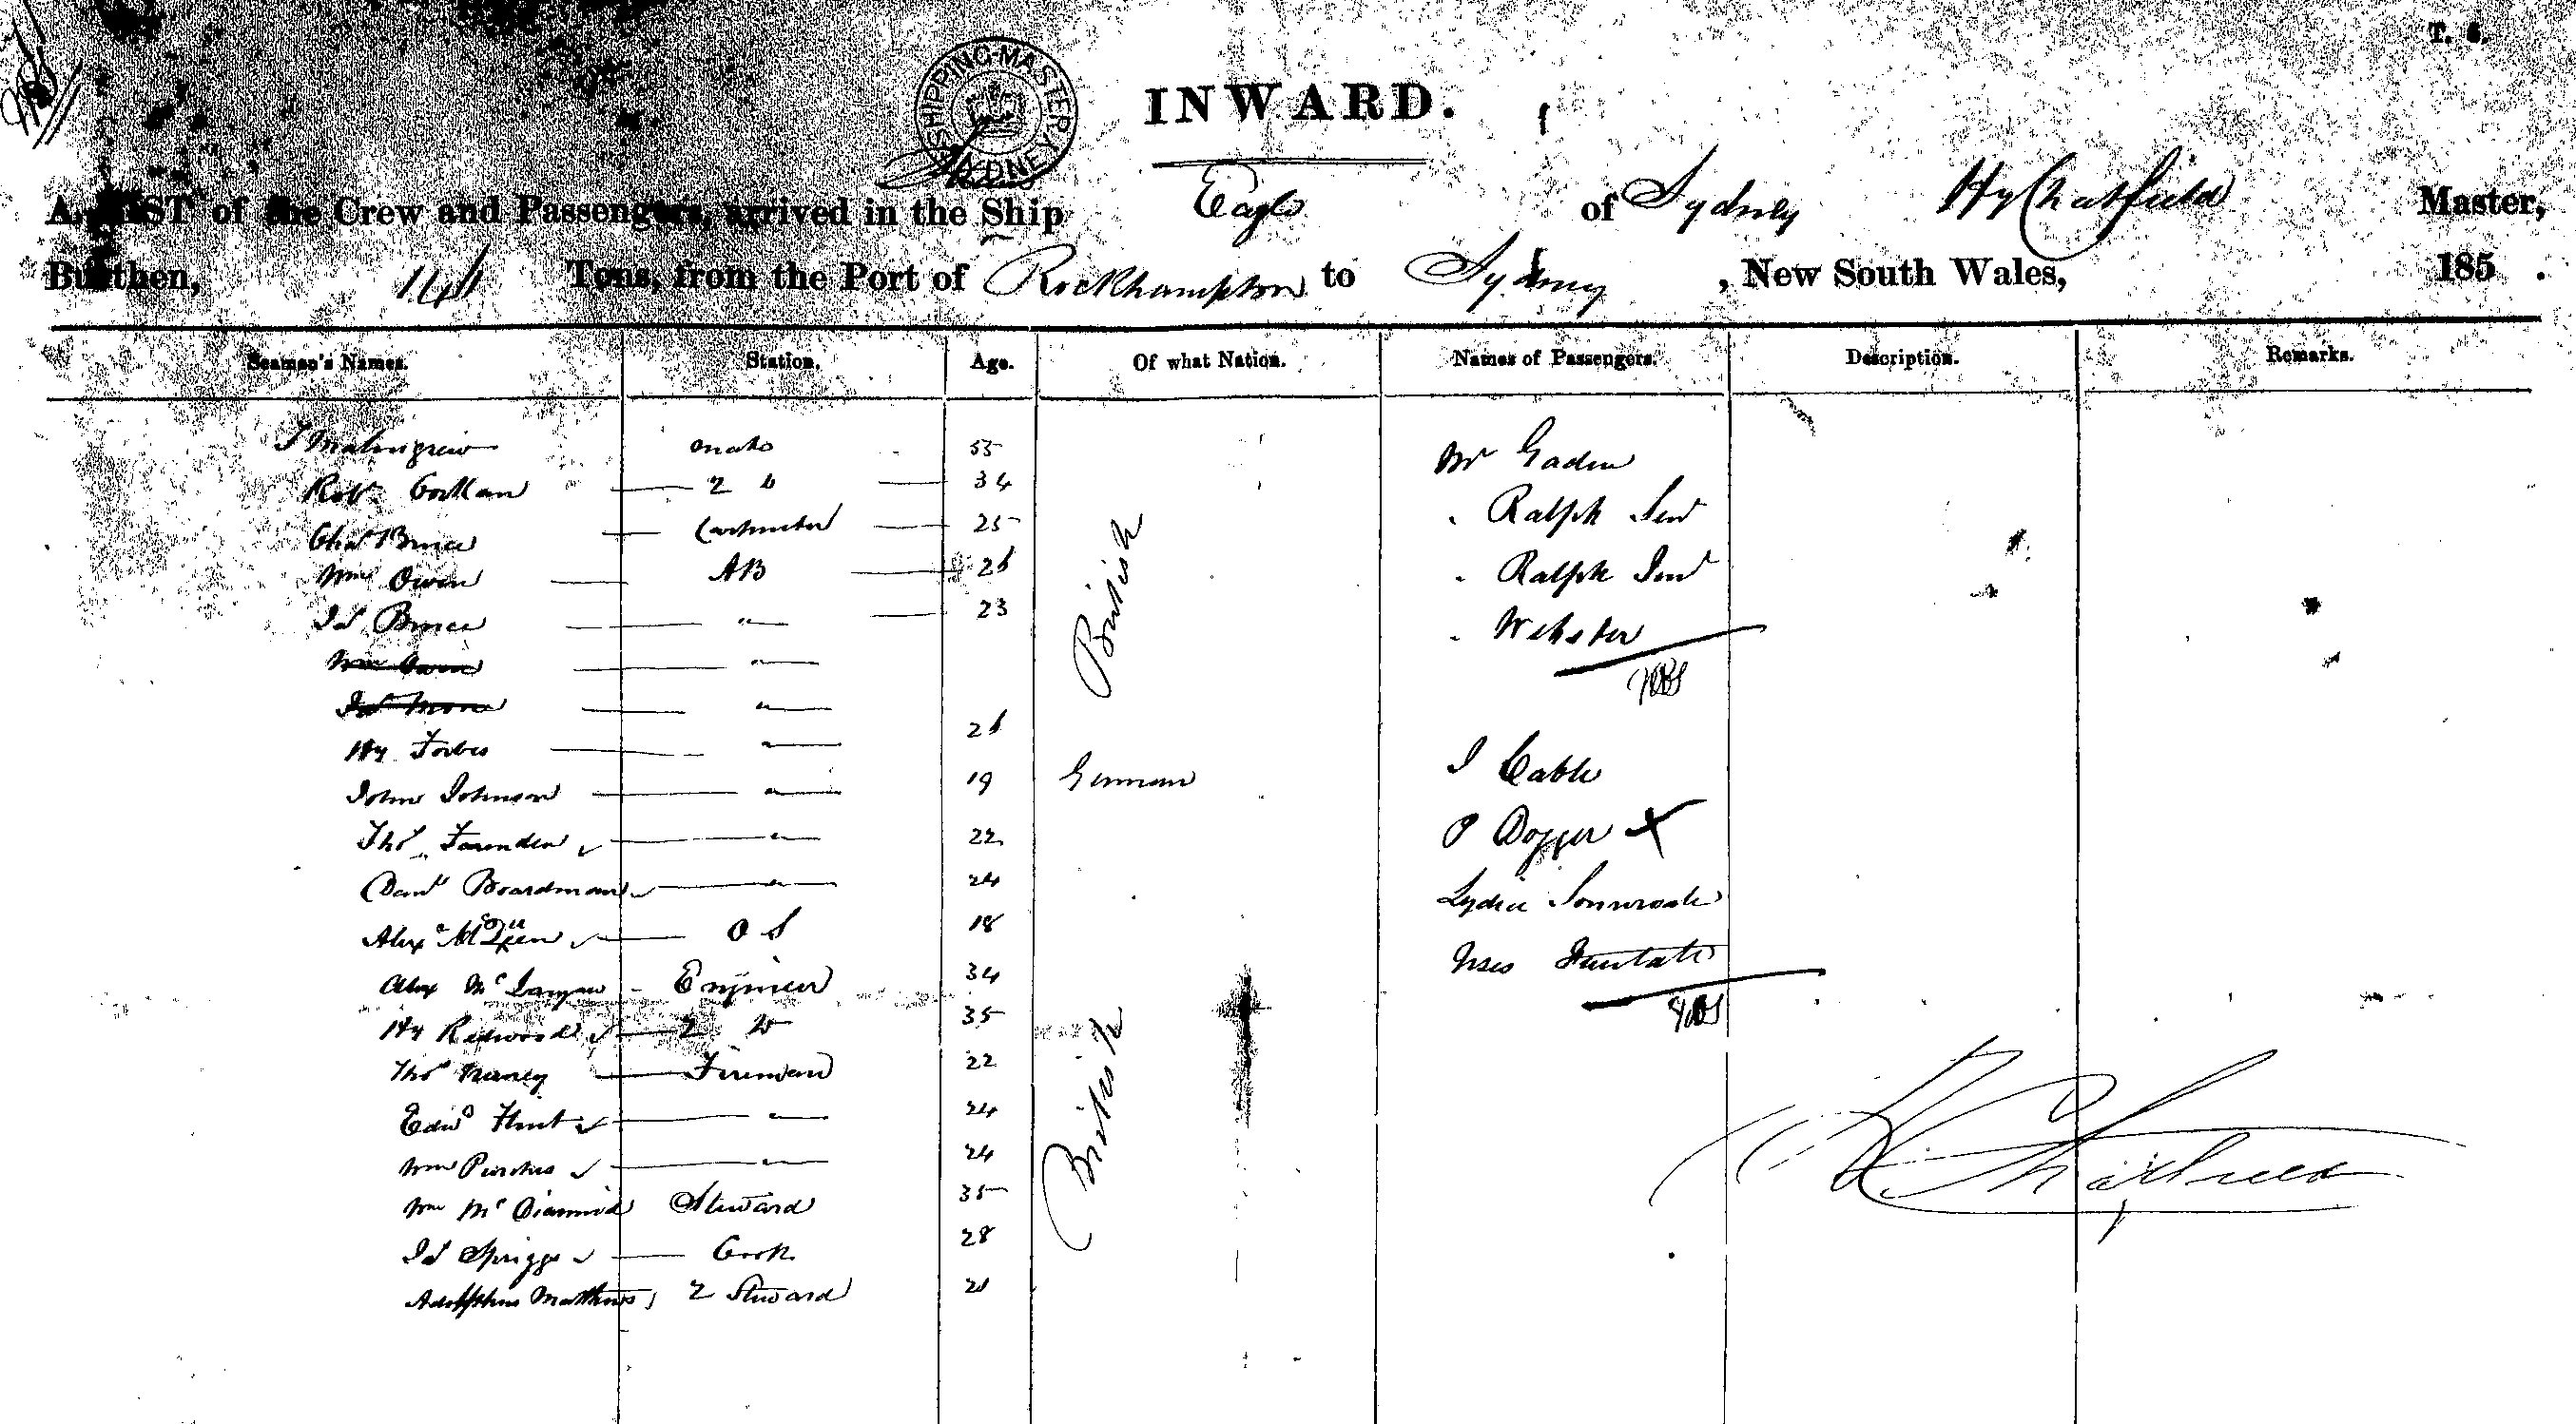 T. 6.
SHIPPING MASTER SYDNEY
INWARD.
A LIST of the Crew and Passengers, arrived in the Ship Eagle of Sydney Hy Chatfield Master,
Burthen, Tons, from the Port of Rockhampton to Sydney, New South Wales, 185 .
Seamen's Names. Station. Age. Of what Nation. Names of Passengers. Description. Remarks.
mate 55 Mr Gaden
Robt 2 D 34 " Ralph Senr
Chas Bruce 25 British " Ralph Junr
Wm Owen AB 26 " Webster
Js Bruce " 23
Wm Owen "
"
Hy Forbes " 26 J Cable
John Johnson " 19 German P
Thos " 22 Lydia
Danl Boardman " 24
Alexr McQueen O S 18
Alex Mc Engineer 34
Hy Redwood 2 Do 35
Thos Fireman 22 British
Edwd Flint " 24
Wm " 24
Wm McDiarmid Steward 35
Js Spriggs Cook 28
Adolphus Matthews 2 Steward 21
H Chatfield